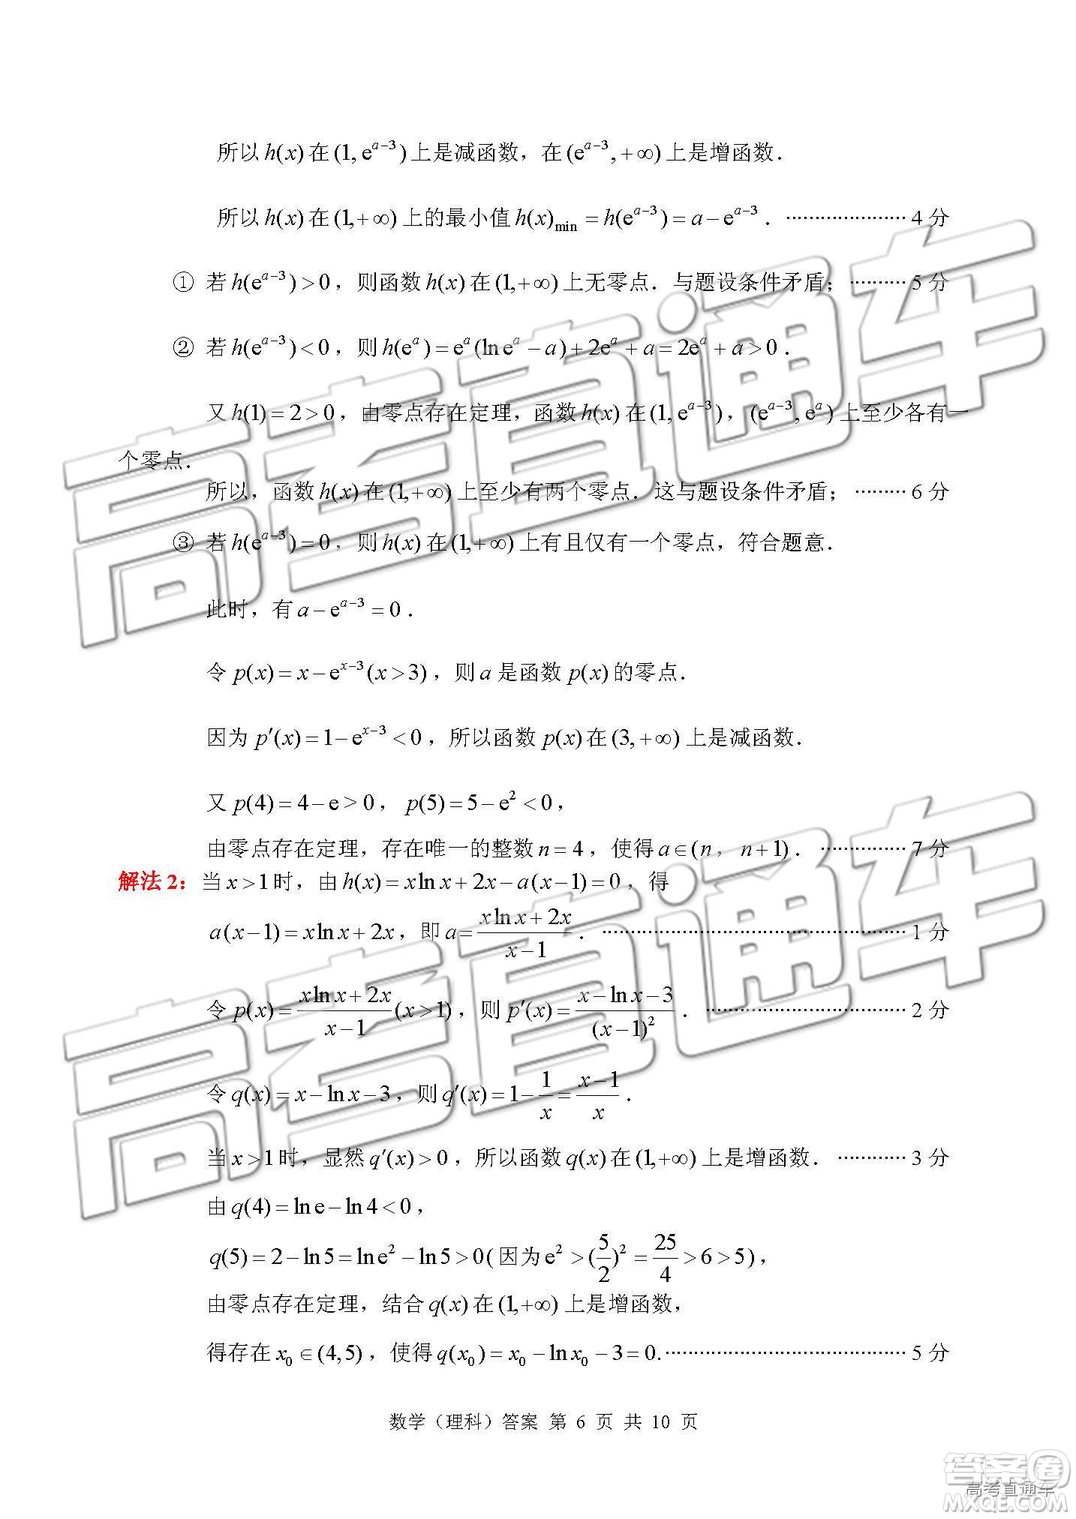 所以 h(x) 在 (1, e^{a-3}) 上是减函数，在 (e^{a-3}, +∞) 上是增函数．
所以 h(x) 在 (1,+∞) 上的最小值 h(x)_{min} = h(e^{a-3}) = a - e^{a-3}．⋯⋯⋯⋯⋯⋯⋯ 4 分
① 若 h(e^{a-3}) > 0，则函数 h(x) 在 (1,+∞) 上无零点．与题设条件矛盾；⋯⋯⋯ 5 分
② 若 h(e^{a-3}) < 0，则 h(e^a) = e^a(ln e^a - a) + 2e^a + a = 2e^a + a > 0．
又 h(1) = 2 > 0，由零点存在定理，函数 h(x) 在 (1, e^{a-3})，(e^{a-3}, e^a) 上至少各有一
个零点．
所以，函数 h(x) 在 (1,+∞) 上至少有两个零点．这与题设条件矛盾；⋯⋯⋯ 6 分
③ 若 h(e^{a-3}) = 0，则 h(x) 在 (1,+∞) 上有且仅有一个零点，符合题意．
此时，有 a - e^{a-3} = 0．
令 p(x) = x - e^{x-3}(x > 3)，则 a 是函数 p(x) 的零点．
因为 p′(x) = 1 - e^{x-3} < 0，所以函数 p(x) 在 (3,+∞) 上是减函数．
又 p(4) = 4 - e > 0，p(5) = 5 - e^2 < 0，
由零点存在定理，存在唯一的整数 n = 4，使得 a ∈ (n，n+1)．⋯⋯⋯⋯⋯ 7 分
解法 2：当 x > 1 时，由 h(x) = x ln x + 2x - a(x-1) = 0，得
a(x-1) = x ln x + 2x，即 a = \frac{x ln x + 2x}{x-1}．⋯⋯⋯⋯⋯⋯⋯⋯⋯⋯⋯⋯⋯⋯ 1 分
令 p(x) = \frac{x ln x + 2x}{x-1}(x > 1)，则 p′(x) = \frac{x - ln x - 3}{(x-1)^2}．⋯⋯⋯⋯⋯⋯⋯⋯⋯⋯ 2 分
令 q(x) = x - ln x - 3，则 q′(x) = 1 - \frac{1}{x} = \frac{x-1}{x}．
当 x > 1 时，显然 q′(x) > 0，所以函数 q(x) 在 (1,+∞) 上是增函数．⋯⋯⋯⋯ 3 分
由 q(4) = ln e - ln 4 < 0，
q(5) = 2 - ln 5 = ln e^2 - ln 5 > 0(因为 e^2 > (\frac{5}{2})^2 = \frac{25}{4} > 6 > 5)，
由零点存在定理，结合 q(x) 在 (1,+∞) 上是增函数，
得存在 x_0 ∈ (4,5)，使得 q(x_0) = x_0 - ln x_0 - 3 = 0.⋯⋯⋯⋯⋯⋯⋯⋯⋯⋯⋯ 5 分
数学（理科）答案 第 6 页 共 10 页
高考直通车
高考直通车
答案圈
高考直通车
MXQE.COM